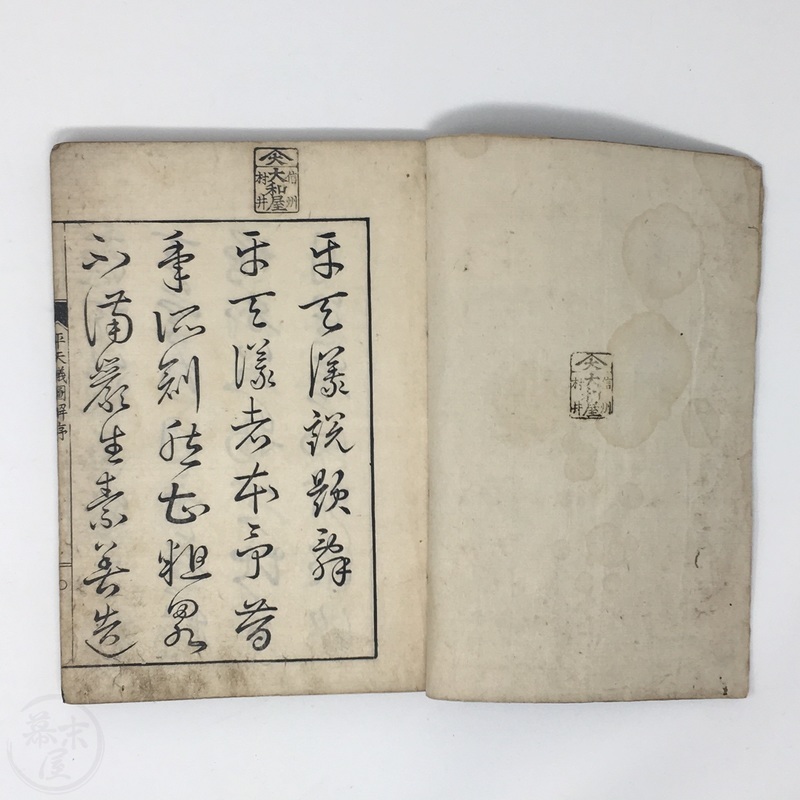 平天儀說題辭
平天儀者本予昔
年所創然粗畧
不備巖生素善造
平天儀圖解序
信州
大和屋
村井
信州
大和屋
村井
幕末屋